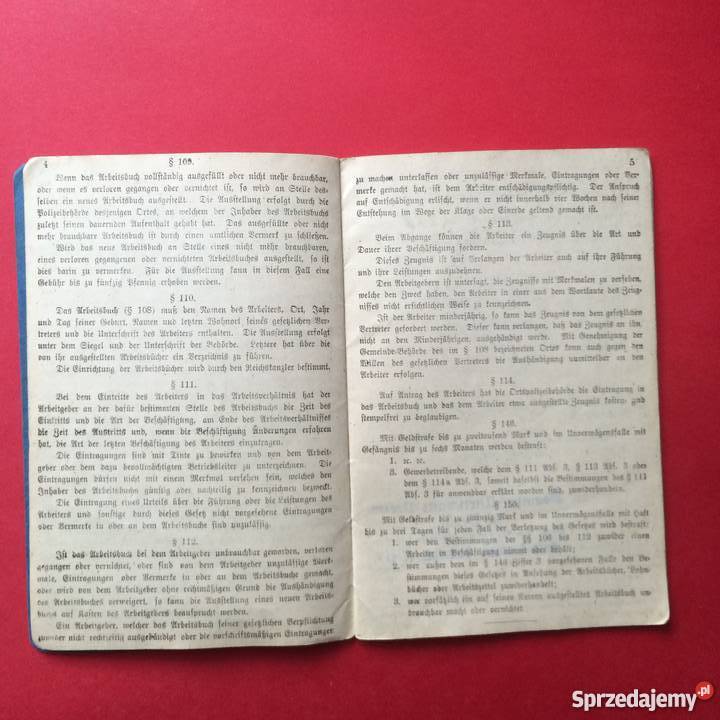 4
§ 109.
Wenn das Arbeitsbuch vollständig ausgefüllt oder nicht mehr brauchbar,
oder wenn es verloren gegangen oder vernichtet ist, so wird an Stelle des-
selben ein neues Arbeitsbuch ausgestellt. Die Ausstellung erfolgt durch die
Polizeibehörde desjenigen Ortes, an welchem der Inhaber des Arbeitsbuchs
zuletzt seinen dauernden Aufenthalt gehabt hat. Das ausgefüllte oder nicht
mehr brauchbare Arbeitsbuch ist durch einen amtlichen Vermerk zu schließen.
Wird das neue Arbeitsbuch an Stelle eines nicht mehr brauchbaren,
eines verloren gegangenen oder vernichteten Arbeitsbuches ausgestellt, so ist
dies darin zu vermerken. Für die Ausstellung kann in diesem Fall eine
Gebühr bis zu fünfzig Pfennig erhoben werden.
§ 110.
Das Arbeitsbuch (§ 108) muß den Namen des Arbeiters, Ort, Jahr
und Tag seiner Geburt, Namen und letzten Wohnort seines gesetzlichen Ver-
treters und die Unterschrift des Arbeiters enthalten. Die Ausstellung erfolgt
unter dem Siegel und der Unterschrift der Behörde. Letztere hat über die
von ihr ausgestellten Arbeitsbücher ein Verzeichnis zu führen.
Die Einrichtung der Arbeitsbücher wird durch den Reichskanzler bestimmt.
§ 111.
Bei dem Eintritte des Arbeiters in das Arbeitsverhältnis hat der
Arbeitgeber an der dafür bestimmten Stelle des Arbeitsbuchs die Zeit des
Eintritts und die Art der Beschäftigung, am Ende des Arbeitsverhältnisses
die Zeit des Austritts und, wenn die Beschäftigung Änderungen erfahren
hat, die Art der letzten Beschäftigung des Arbeiters einzutragen.
Die Eintragungen sind mit Tinte zu bewirken und von dem Arbeit-
geber oder dem dazu bevollmächtigten Betriebsleiter zu unterzeichnen. Die
Eintragungen dürfen nicht mit einem Merkmal versehen sein, welches den
Inhaber des Arbeitsbuchs günstig oder nachteilig zu kennzeichnen bezweckt.
Die Eintragung eines Urteils über die Führung oder die Leistungen des
Arbeiters und sonstige durch dieses Gesetz nicht vorgesehene Eintragungen
oder Vermerke in oder an dem Arbeitsbuch sind unzulässig.
§ 112.
Ist das Arbeitsbuch bei dem Arbeitgeber unbrauchbar geworden, verloren
gegangen oder vernichtet, oder sind von dem Arbeitgeber unzulässige Merk-
male, Eintragungen oder Vermerke in oder an dem Arbeitsbuche gemacht,
oder wird von dem Arbeitgeber ohne rechtmäßigen Grund die Aushändigung
des Arbeitsbuchs verweigert, so kann die Ausstellung eines neuen Arbeits-
buchs auf Kosten des Arbeitgebers beansprucht werden.
Ein Arbeitgeber, welcher das Arbeitsbuch seiner gesetzlichen Verpflichtung
zuwider nicht rechtzeitig ausgehändigt oder die vorschriftsmäßigen Eintragungen
5
zu machen unterlassen oder unzulässige Merkmale, Eintragungen oder Ver-
merke gemacht hat, ist dem Arbeiter entschädigungspflichtig. Der Anspruch
auf Entschädigung erlischt, wenn er nicht innerhalb vier Wochen nach seiner
Entstehung im Wege der Klage oder Einrede geltend gemacht ist.
§ 113.
Beim Abgange können die Arbeiter ein Zeugnis über die Art und
Dauer ihrer Beschäftigung fordern.
Dieses Zeugnis ist auf Verlangen der Arbeiter auch auf ihre Führung
und ihre Leistungen auszudehnen.
Den Arbeitgebern ist untersagt, die Zeugnisse mit Merkmalen zu versehen,
welche den Zweck haben, den Arbeiter in einer aus dem Wortlaute des Zeug-
nisses nicht ersichtlichen Weise zu kennzeichnen.
Ist der Arbeiter minderjährig, so kann das Zeugnis von dem gesetzlichen
Vertreter gefordert werden. Dieser kann verlangen, daß das Zeugnis an ihn,
nicht an den Minderjährigen, ausgehändigt werde. Mit Genehmigung der
Gemeinde-Behörde des im § 108 bezeichneten Ortes kann auch gegen den
Willen des gesetzlichen Vertreters die Aushändigung unmittelbar an den
Arbeiter erfolgen.
§ 114.
Auf Antrag des Arbeiters hat die Ortspolizeibehörde die Eintragung in
das Arbeitsbuch und das dem Arbeiter etwa ausgestellte Zeugnis kosten- und
stempelfrei zu beglaubigen.
§ 146.
Mit Geldstrafe bis zu zweitausend Mark und im Unvermögensfalle mit
Gefängnis bis zu sechs Monaten werden bestraft:
1. ꝛc. ꝛc.
3. Gewerbetreibende, welche dem § 111 Abs. 3, § 113 Abs. 3 oder
dem § 114a Abs. 3, soweit daselbst die Bestimmungen des § 111
Abs. 3 für anwendbar erklärt worden sind, zuwiderhandeln.
§ 150.
Mit Geldstrafe bis zu zwanzig Mark und im Unvermögensfalle mit Haft
bis zu drei Tagen für jeden Fall der Verletzung des Gesetzes wird bestraft:
1. wer den Bestimmungen der §§ 106 bis 112 zuwider einen
Arbeiter in Beschäftigung nimmt oder behält;
2. wer außer dem im § 146 Ziffer 3 vorgesehenen Falle den Be-
stimmungen dieses Gesetzes in Ansehung der Arbeitsbücher, Lohn-
bücher oder Arbeitszettel zuwiderhandelt;
3. wer vorsätzlich ein auf seinen Namen ausgestelltes Arbeitsbuch un-
brauchbar macht oder vernichtet
Sprzedajemy.pl